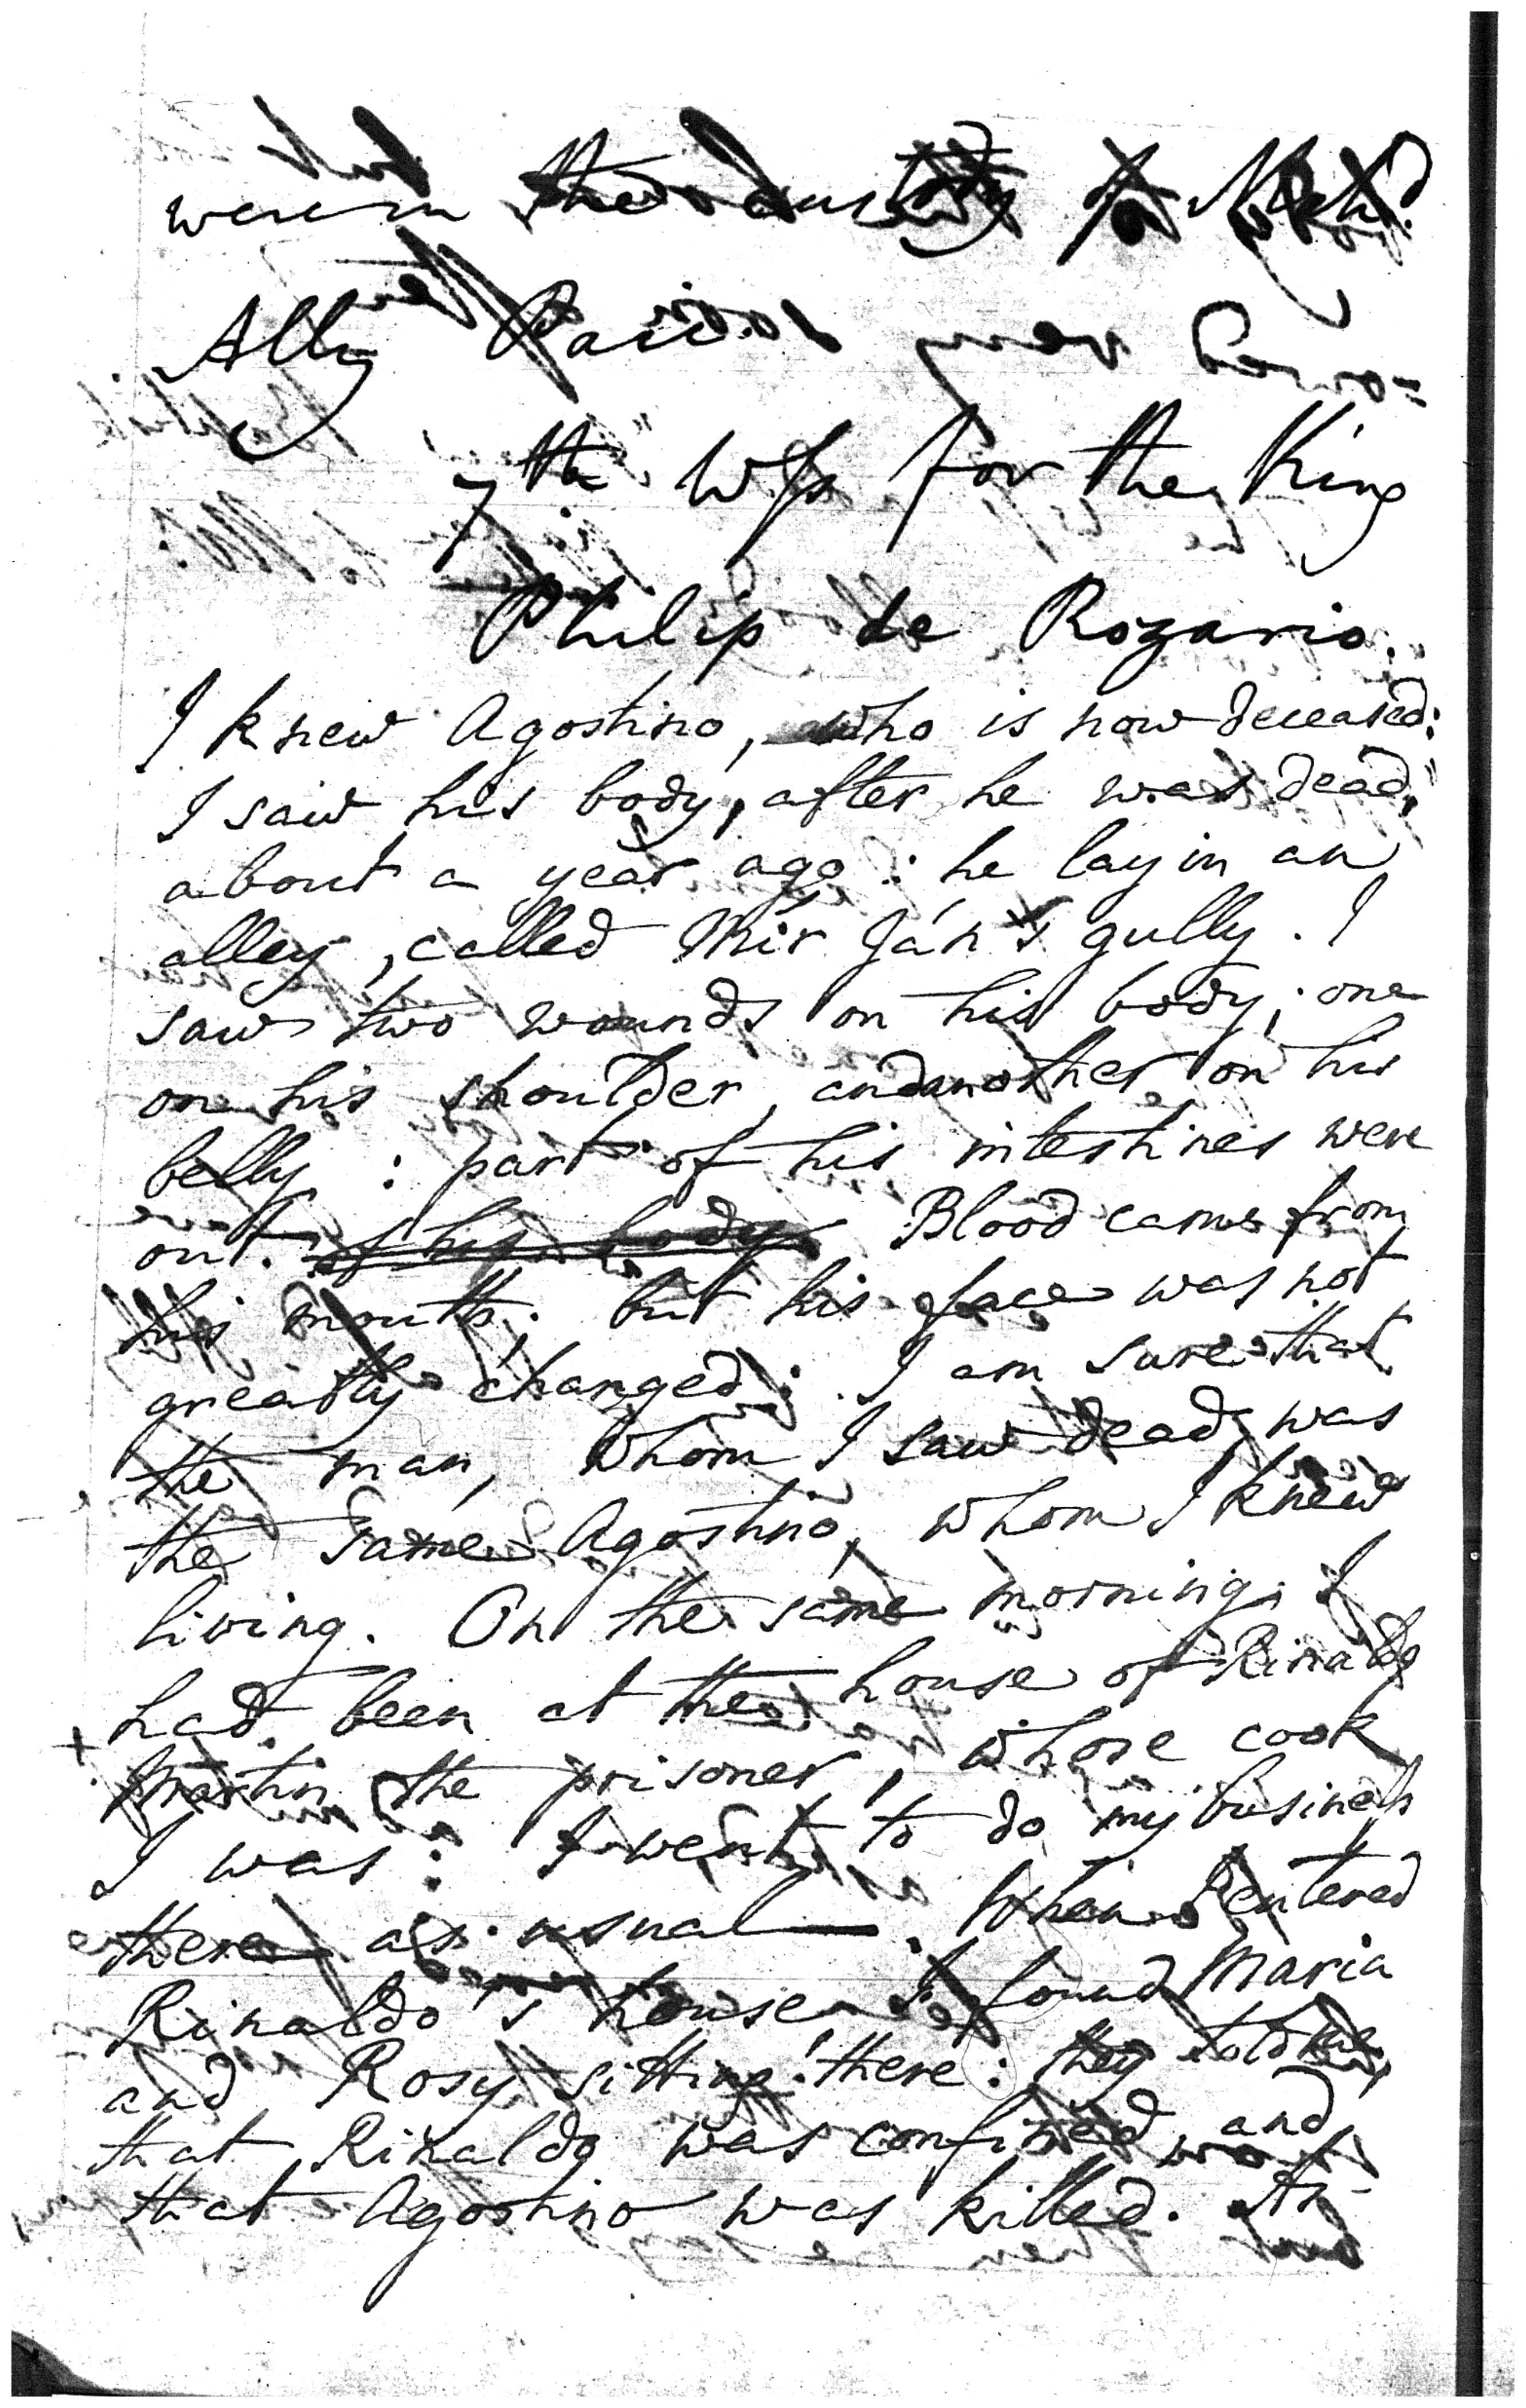 were in the custody of
Ally
7th. Wss for the King
Philip de Rozario.
I knew Agostino, who is now deceased:
I saw his body, after he was dead,
about a year ago : he lay in an
alley, called Mír Ján's gully. I
saw two wounds on his body; one
on his shoulder, and another on his
belly : part of his intestines were
out. of his body Blood came from
his mouth; but his face was not
greatly changed: I am sure that
the man, whom I saw dead, was
the same Agostino, whom I knew
living. On the same morning I
had been at the house of Rinaldo
Martin the prisoner, whose cook
I was : I went to do my business
there as usual. When I entered
Rinaldo's house I found Maria
and Rosy sitting there: they told me
that Rinaldo was confined and
that Agostino was killed. An-